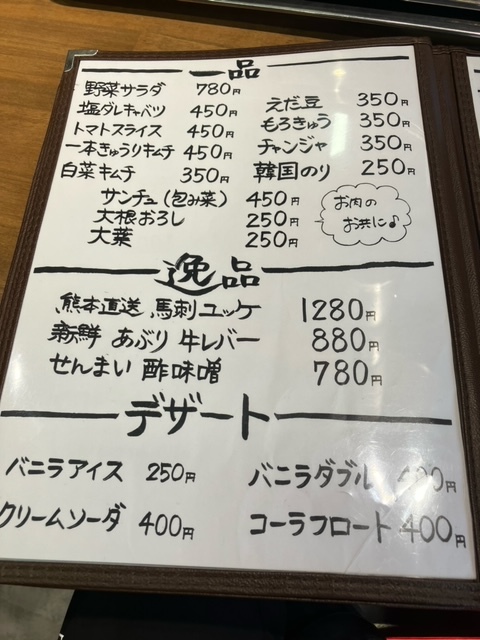 一品
野菜サラダ 780円
塩ダレキャベツ 450円
トマトスライス 450円
一本きゅうりキムチ 450円
白菜キムチ 350円
えだ豆 350円
もろきゅう 350円
チャンジャ 350円
韓国のり 250円
サンチュ（包み菜） 450円
大根おろし 250円
大葉 250円
お肉の
お共に♪
逸品
熊本直送 馬刺ユッケ 1280円
新鮮 あぶり 牛レバー 880円
せんまい 酢味噌 780円
デザート
バニラアイス 250円
クリームソーダ 400円
バニラダブル 400円
コーラフロート 400円